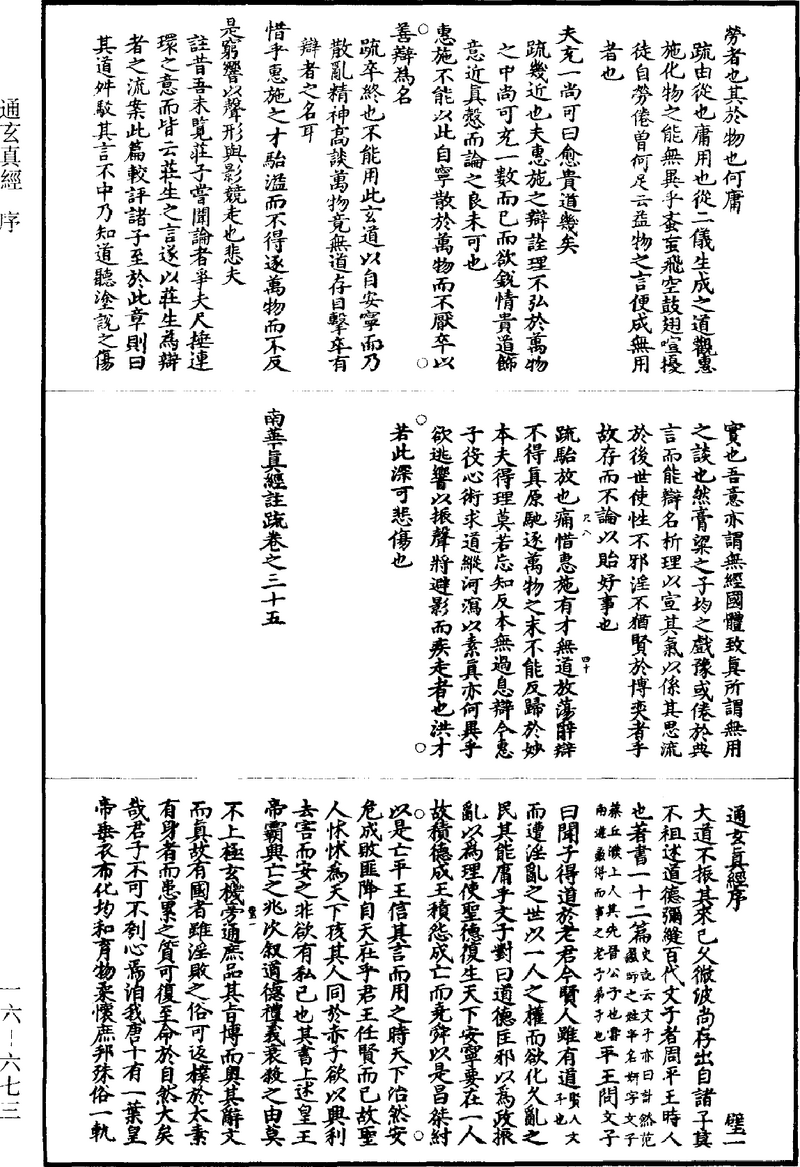 勞者也其於物也何庸
疏由從也庸用也從二儀生成之道觀惠
施化物之能無異乎蚉䖟飛空鼓翅喧擾
徒自勞倦曾何足云益物之言便成無用
者也
夫充一尚可曰愈貴道幾矣
疏幾近也夫惠施之辯詮理不弘於萬物
之中尚可充一數而已而欲銳情貴道飾
意近真愨而論之良未可也
惠施不能以此自寧散於萬物而不厭卒以
善辯為名
疏卒終也不能用此玄道以自安寧而乃
散亂精神高談萬物竟無道存目擊卒有
辯者之名耳
惜乎惠施之才駘濫而不得逐萬物而不反
是窮響以聲形與影競走也悲夫
註昔吾未覽莊子嘗聞論者爭夫尺捶連
環之意而皆云莊生之言遂以莊生為辯
者之流案此篇較評諸子至於此章則曰
其道舛駁其言不中乃知道聽塗說之傷
實也吾意亦謂無經國體致真所謂無用
之談也然膏粱之子均之戲豫或倦於典
言而能辯名析理以宣其氣以係其思流
於後世使性不邪淫不猶賢於博奕者乎
故存而不論以貽好事也
疏駘放也痛惜惠施有才無道放蕩辭辯
不得真原馳逐萬物之末不能反歸於妙
本夫得理莫若忘知反本無過息辯今惠
子役心術求道縱河瀉以索真亦何異乎
欲逃響以振聲將避影而疾走者也洪才
若此深可悲傷也
南華真經註疏卷之三十五
通玄真經序 璧一
大道不振其來已久微波尚存出自諸子莫
不祖述道德彌縫百代文子者周平王時人
也著書一十二篇史記云文子亦曰計然范蠡師之姓辛名妍字文子葵丘濮上人其先晉公子也常南遊蠡得而事之老子弟子也平王問文子
曰聞子得道於老君今賢人雖有道賢人文子也
而遭淫亂之世以一人之權而欲化久亂之
民其能庸乎文子對曰道德匡邪以為政振
亂以為理使聖德復生天下安寧要在一人
故積德成王積怨成亡而堯舜以是昌桀紂
以是亡平王信其言而用之時天下治然安
危成敗匪降自天在乎君王任賢而已故聖
人怵怵為天下孩其人同於赤子欲以興利
去害而安之非欲有私己也其書上述皇王
帝霸興亡之兆次敘道德禮義衰殺之由莫
不上極玄機旁通庶品其旨博而奧其辭文
而真故有國者雖淫敗之俗可返樸於太素
有身者而患累之質可復至命於自然大矣
哉君子不可不刳心焉洎我唐十有一葉皇
帝垂衣布化均和育物柔懷庶邦殊俗一軌
通玄真經 序
一六-六七三